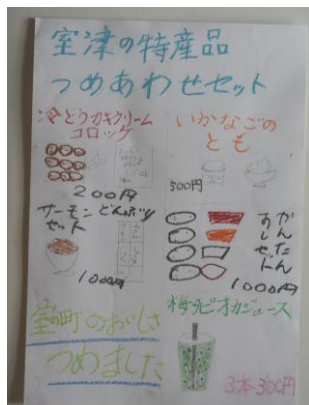 室津の特産品
つめあわせセット
冷とうカキクリーム
コロッケ
200円
いかなごの
とも
500円
サーモンどんぶり
セット
1000円
かんたん
おすしセット
1000円
室の町のおいしさ
つめました
梅タピオカジュース
3本300円